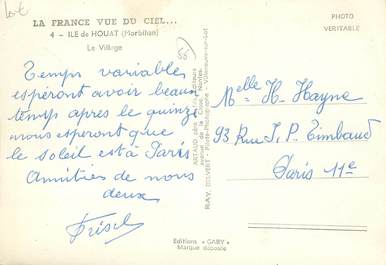 LA FRANCE VUE DU CIEL...
4 - ILE de HOUAT (Morbihan)
Le Village
PHOTO
VERITABLE
Temps variable
espéront avoir beau
temps apres le quinze
nous esperont que
le soleil est à Paris
Amitiés de nous
deux
Melle H. Hayne
93 Rue J. P. Timbaud
Paris 11e
RAY. DELVERT - Pilote-Photographe - Villeneuve-sur-Lot
Editions "GABY"
Marque déposée